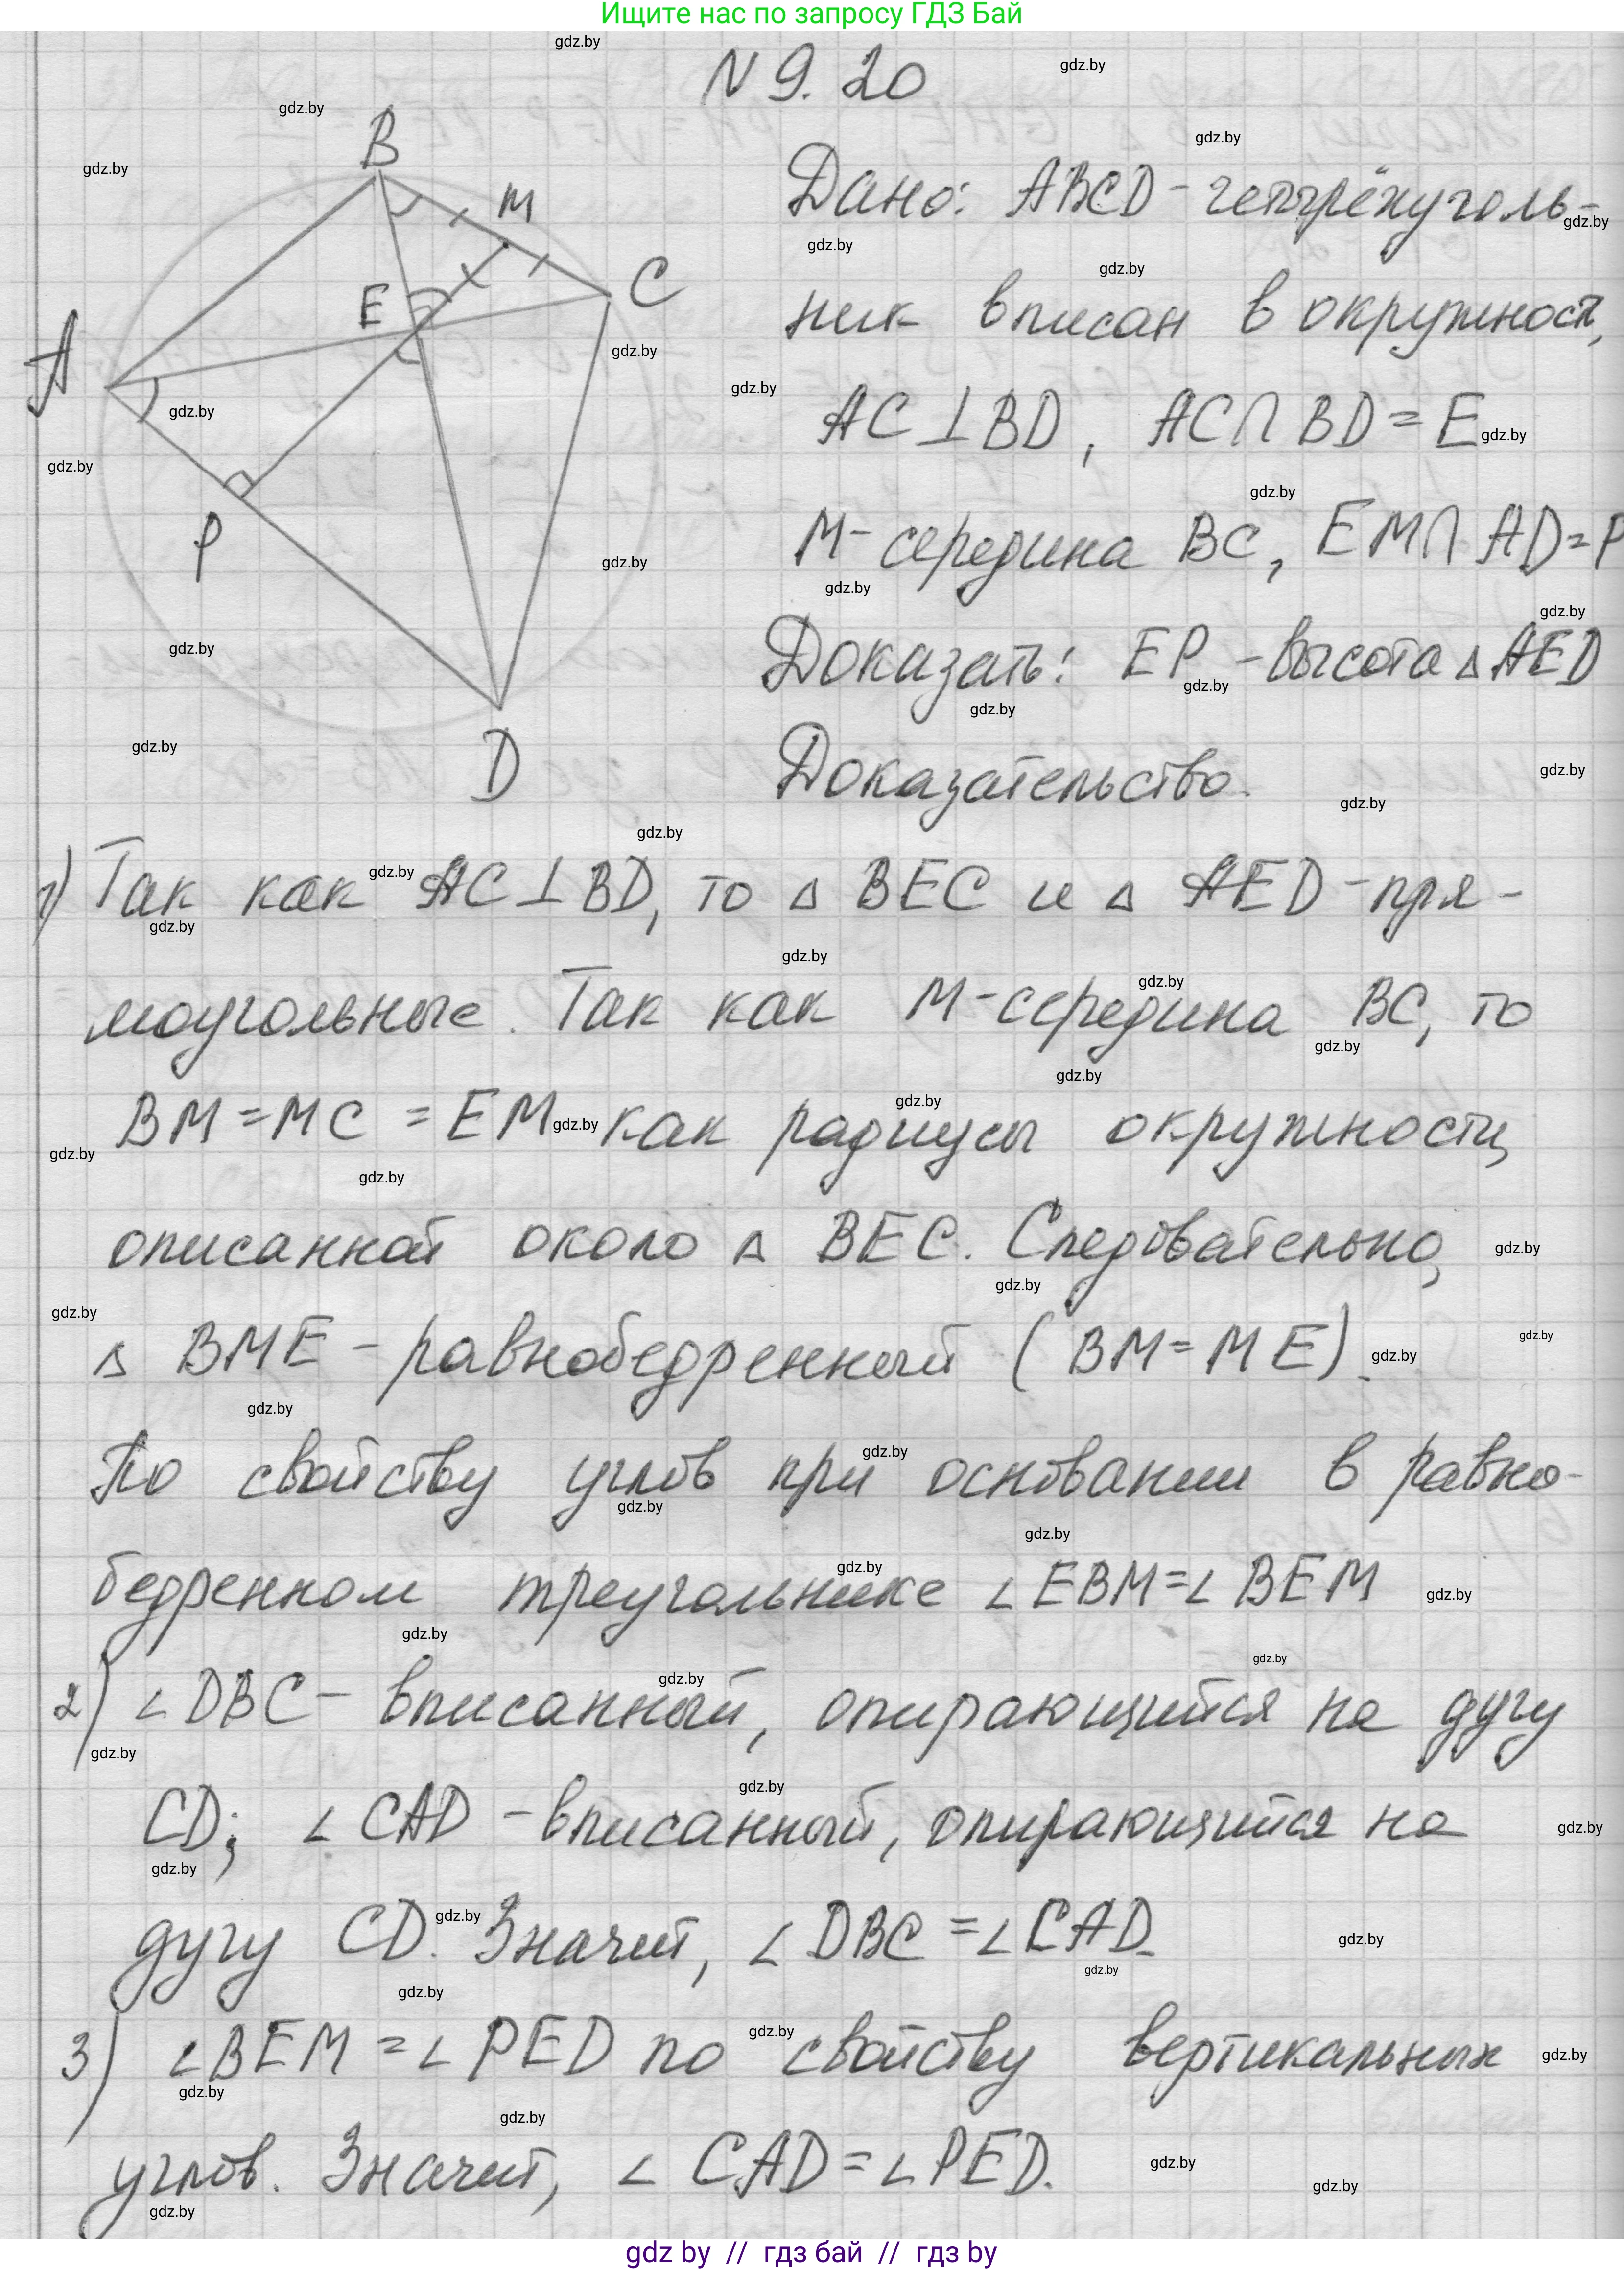 Ищите нас по запросу ГДЗ Бай
N 9.20
B
M
E
C
A
P
D
Дано: ABCD - четырёхуголь-
ник вписан в окружност,
AC⊥BD, AC∩BD=E
M- середина BC, EM∩AD=P
Доказать: EP - высота △AED
Доказательство.
1) Так как AC⊥BD, то △ BEC и △ AED - пря-
моугольные. Так как M - середина BC, то
BM = MC = EM как радиусы окружности,
описанной около △ BEC. Следовательно,
△ BME - равнобедренный (BM = ME).
По свойству углов при основании в равно-
бедренном треугольнике ∠EBM=∠BEM
2) ∠DBC - вписанный, опирающийся на дугу
CD; ∠CAD - вписанный, опирающийся на
дугу CD. Значит, ∠DBC = ∠CAD.
3) ∠BEM = ∠PED по свойству вертикальных
углов. Значит, ∠CAD = ∠PED.
gdz.by
gdz by // гдз бай // гдз by